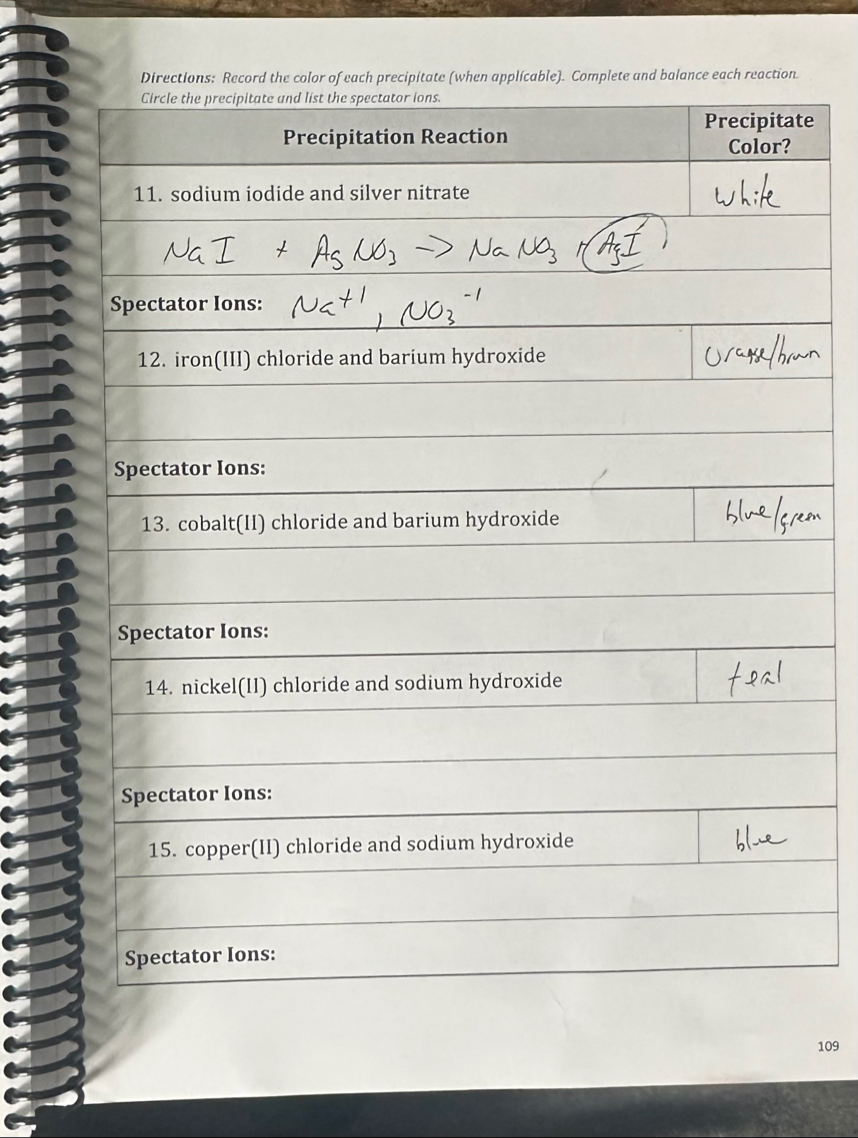 Directions: Record the color of each precipitate (when applicable). Complete and balance each reaction.
Circle the precipitate and list the spectator ions.
Precipitation Reaction
Precipitate
Color?
11. sodium iodide and silver nitrate
white
NaI + AgNO₃ -> NaNO₃ + AgI
Spectator Ions: Na⁺¹, NO₃⁻¹
12. iron(III) chloride and barium hydroxide
orange/brown
Spectator Ions:
13. cobalt(II) chloride and barium hydroxide
blue/green
Spectator Ions:
14. nickel(II) chloride and sodium hydroxide
teal
Spectator Ions:
15. copper(II) chloride and sodium hydroxide
blue
Spectator Ions:
109